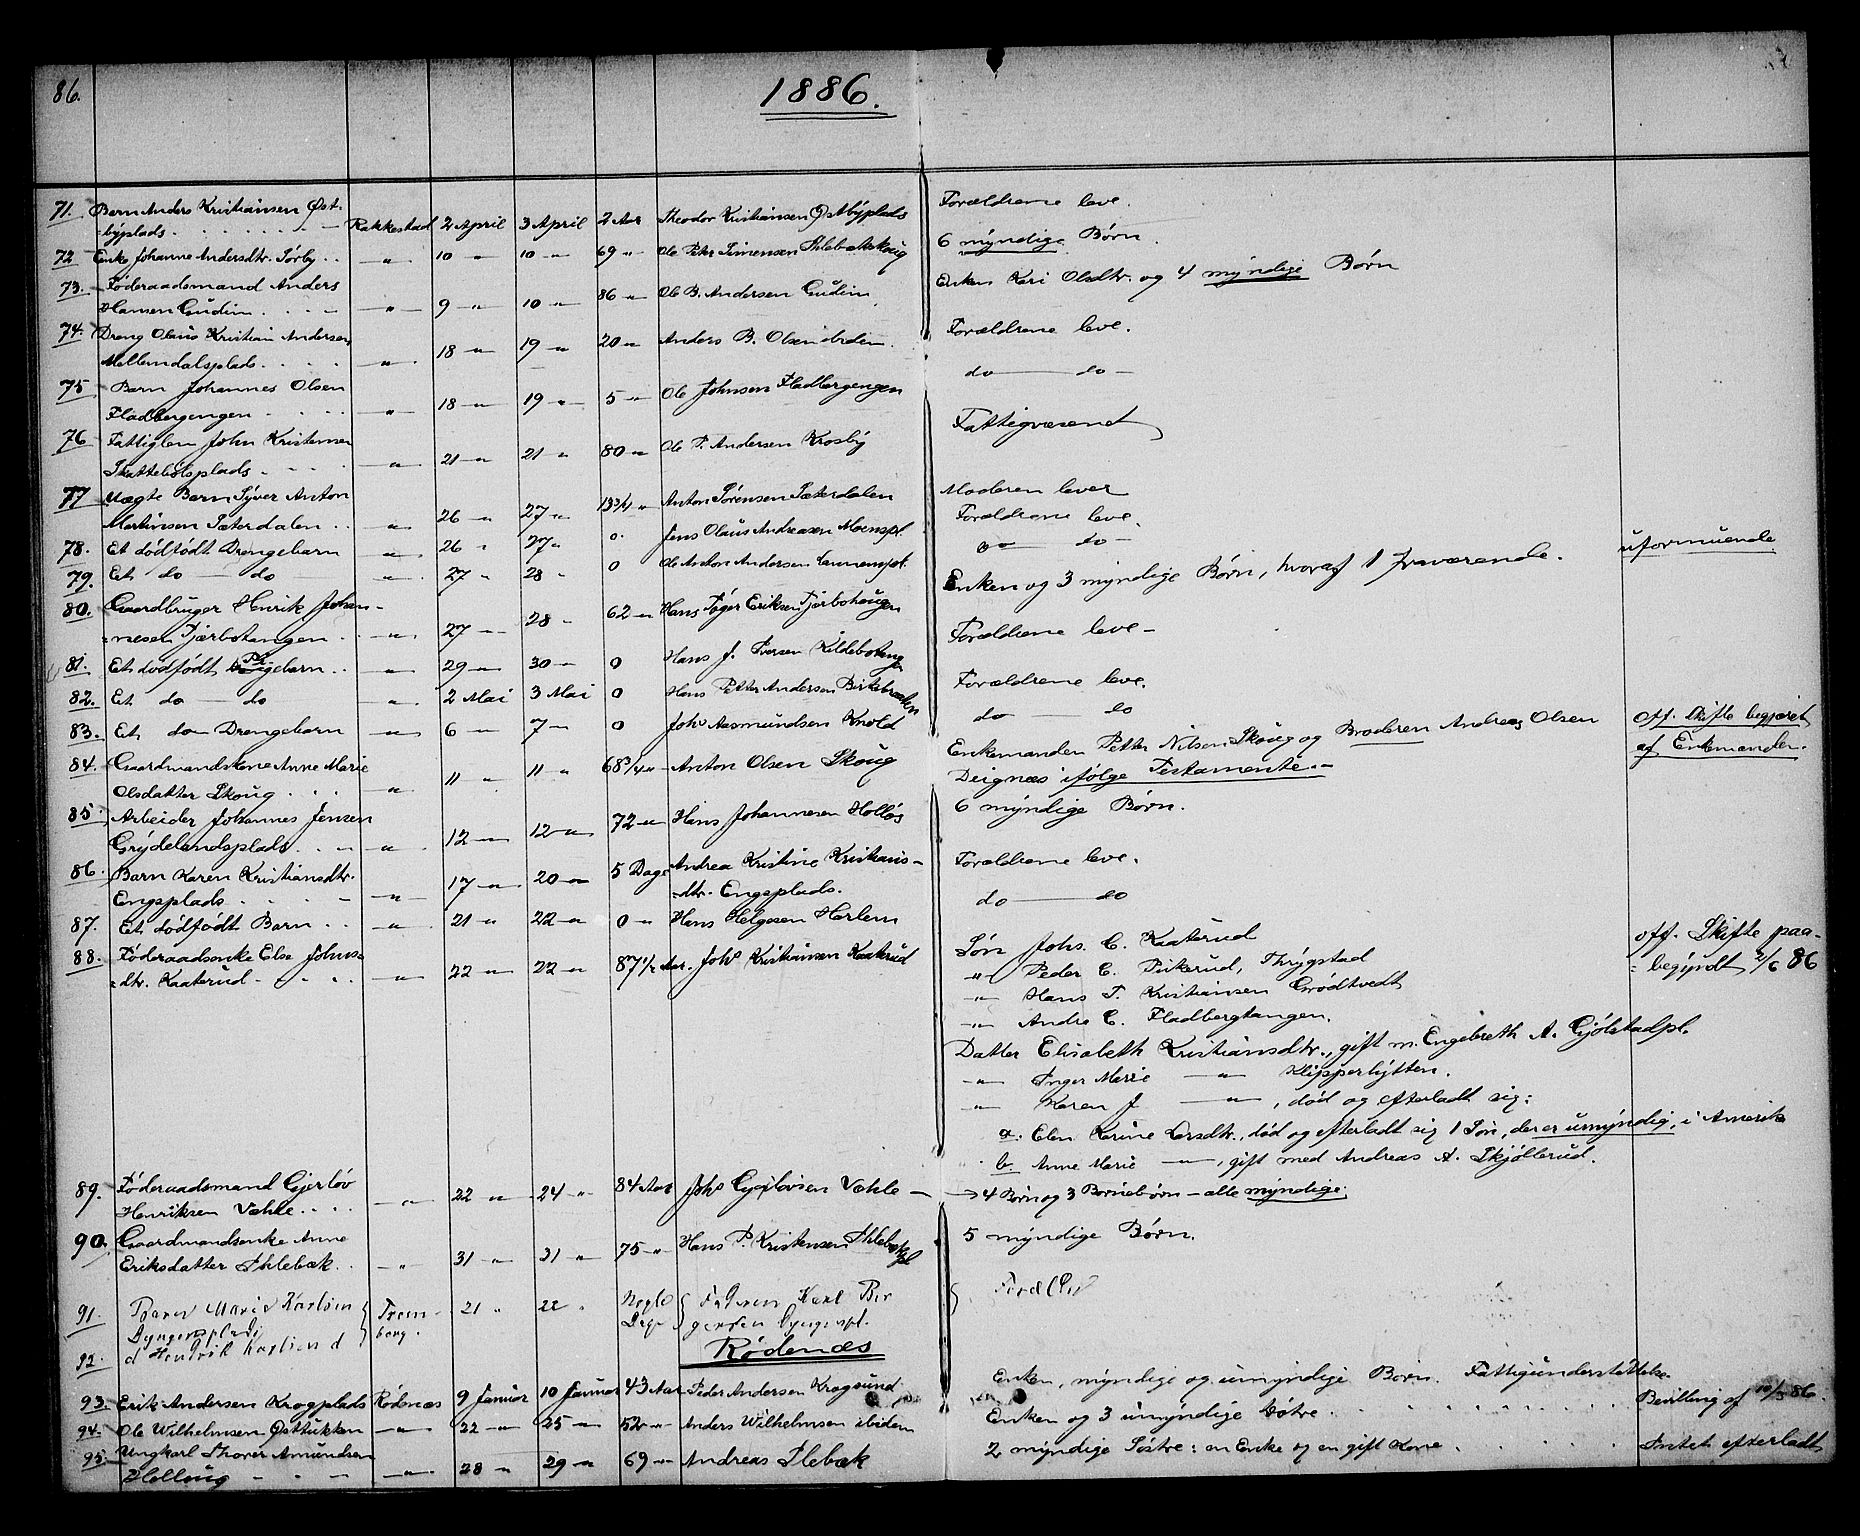 86.
1886.
71. Barn Anders Kristiansen Øst-
=byplads. Rakkestad 2 April 3 April 2 Aar Theodor Kristiansen Østbyplads Forældrene leve.
72 Enke Johanne Andersdtr. Sørby .. „ 10 „ 10 „ 69 „ Ole Peter Simensen 6 myndige Børn.
73. Føderaadsmand Anders
Hansen Gudim. „ 9 „ 10 „ 86 „ Ole B. Andersen Gudim Enken Kari Olsdtr. og 4 myndige Børn
74. Dreng Olaus Kristian Andersen
Mellemdalsplads. „ 18 „ 19 „ 20 „ Anders B. Olsen ibidem. Forældrene leve.
75 Barn Johannes Olsen
Fladbergengen „ 18 „ 19 „ 5 „ Ole Johnsen Fladbergengen do — do —
76 Fattiglem John Kristensen
Skattebølsplads. „ 21 „ 21 „ 80 „ Ole P. Andersen Krosby Fattigvæsenet
77 Uægte Barn Syver Anton
Martinsen Sæterdalen .. „ 26 „ 27 „ 13 3/4 „ Anton Sørensen Sæterdalen Moderen lever
78. Et dødfødt Drengebarn „ 26 „ 27 „ 0. Jens Olaus Andreasen Moenspl. Forældrene leve.
79. Et do — do „ 27 „ 28 „ 0 Ole Anton Andersen do — do —
80. Gaardbruger Henrik Johan-
=nesen Tjærbotangen .. „ 27 „ 28 „ 62 „ Hans Eriksen Enken og 3 myndige Børn, hvoraf 1 fraværende. uformuende
81. Et dødfødt Pigebarn .. „ 29 „ 30 „ 0 Hans J. Iversen Forældrene leve —
82. Et do — do „ 2 Mai 3 Mai 0 Hans Petter Andersen Forældrene leve.
83. Et do Drengebarn „ 6 „ 7 „ 0 Johs Aasmundsen Knold do — do
84. Gaardmandskone Anne Marie
Olsdatter Skoug ... „ 11 „ 11 „ 68 3/4 „ Anton Olsen Skoug Enkemanden Petter Nilsen Skoug og Broderen Andreas Olsen Off. Skifte begjæret
Deignæs ifølge Testamente. — af Enkemanden.
85. Arbeider Johannes Jensen
Grydelandsplads. „ 12 „ 12 „ 72 „ Hans Johannesen Holløs 6 myndige Børn.
86. Barn Karen Kristiansdtr.
Engsplads „ 17 „ 20 „ 5 Dage Andrea Kristine Kristians-
=dtr. Engsplads. Forældrene leve.
87. Et dødfødt Barn .. „ 21 „ 22 „ 0 „ Hans Helgesen Harlem do — do
88. Føderaadsenke Else Johns=
=dtr. Kaaterud. „ 22 „ 22 „ 87 1/2 Aar. Johs Kristiansen Kaaterud Søn Johs. C. Kaaterud off. Skifte paa-
„ Peder C. Thrygstad = begyndt 2/6 86
„ Hans T. Kristiansen Grødtvedt
„ Andre C. Fladbergtangen.
Datter Elisabeth Kristiansdtr., gift m. Engebreth A. Gjølstadpl.
„ Inger Marie — „ Klipperhytten.
„ Karen J — „ , død og efterladt sig:
a: Elen Karine Larsdtr., død og efterladt sig 1 Søn, der er umyndig, i Amerik
b Anne Marie — „, gift med Andreas A. Skjøllerud.
89. Føderaadsmand Gjerløv
Henriksen Væhle .... „ 22 „ 24 „ 84 Aar Johs Gjerløvsen Væhle — 4 Børn og 3 Børnebørn — alle myndige.
90. Gaardmandsenke Anne
Eriksdatter Ihlebæk. . „ 31 „ 31 „ 75 „ Hans P. Kristensen Ihlebækpl 5 myndige Børn.
91. Barn Marie Karlsen
Dyngensplads Trom-
borg. 21 „ 22 „ Nogle
Dage Faderen Karl Bir
gersen Dyngenspl.
92. d Hendrik Karlsen d
Rødenæs
93. Erik Andersen Krogplads Rødenæs 9 Januar 10 Januar 43 Aar Peder Andersen Krogsund Enken, myndige og umyndige Børn. Fattigunderstøttelse
94. Ole Wilhelmsen Østtukken „ 22 „ 25 „ 52 „ Anders Wilhelmsen ibidem Enken og 3 umyndige Døtre. Bevilling af 10/3 86.
95. Ungkarl Thorer Amundsen
Hellaug „ 28 „ 29 „ 69 „ Andreas Ilebæk 2 myndige Søstre: en Enke og en gift Kone Intet efterladt